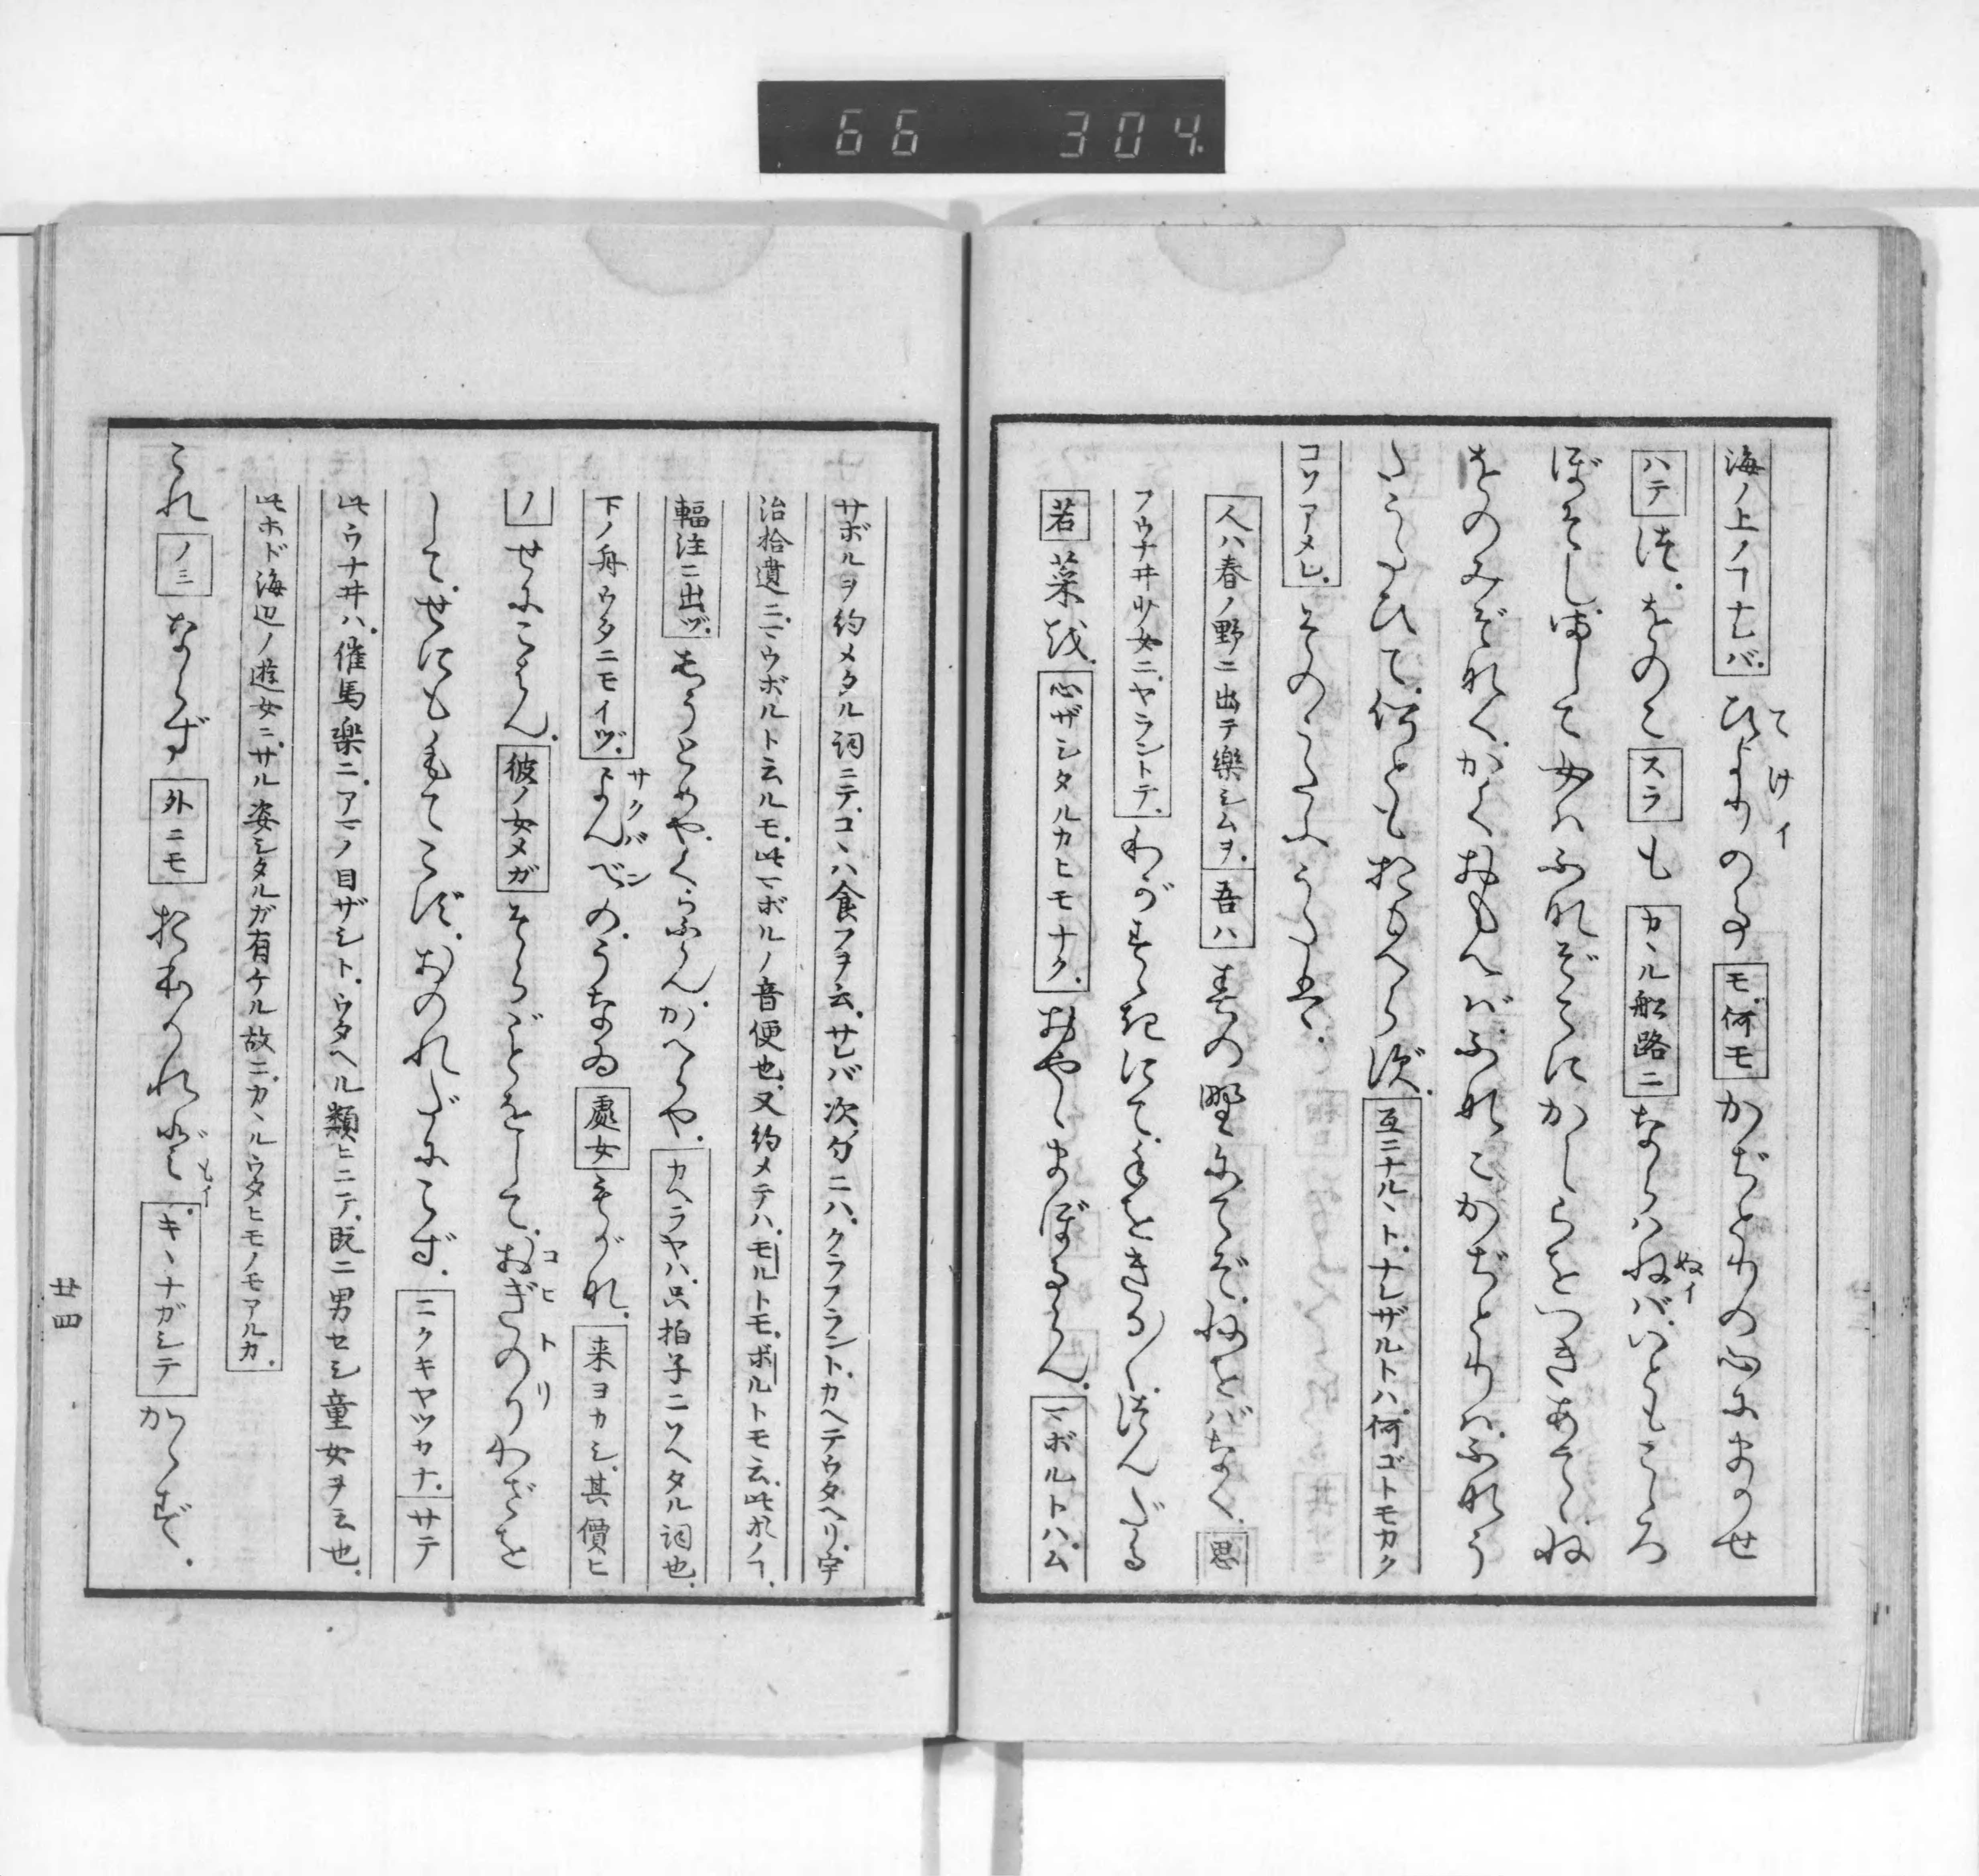 66 304.
海ノ上ノヿナレバ。ひよりのる モ何モ かぢとりの心にまかせ
てけイ
ハテ つ。をのこ スラ も カヽル船路ニ ならハねバ。いともこゝろ
ぬイ
ぼそし。まして女ハふなぞこにかしらをつきあてゝ。ね
をのみぞなく。かくおもへバ。ふなこかぢとりハ。ふなう
たうたひて。何ともおもへらず。互ニナルヽト。ナレザルトハ。何ゴトモカク
コソアメレ。そのうたふうたは。
人ハ春ノ野ニ出テ樂シムヲ。吾ハ 春の野にてぞ。ねをばなく。思
フウナヰ少女ニ。ヤラントテ。わがすゝきにて。手をきる〳〵。つんだる
若 菜を。心ザシタルカヒモナク。おやゝまぼるらん。マボルトハ。ム
サボルヲ約メタル詞ニテ。コヽハ食フヲ云。サレバ次ノ句ニハ。クラフラント。カヘテウタヘリ。宇
治拾遺ニ。マウボルト云ルモ。此マボルノ音便也。又約メテハ。モルトモ。ボルトモ云。此ホノヿ。
輻注ニ出ヅ。しうとめや。くらふらん。かへらや。カヘラヤハ。只拍子ニソヘタル詞也。
下ノ舟ウタニモイヅ。よんべの。うなゐ 處女 もがな。来ヨカシ。其價ヒ
サクバン
ノ せにこはん。彼ノ女メガ そらごとをして。おぎのりわざを
コヒトリ
して。せにももてこず。おのれだにこず。ニクキヤツカナ。サテ
此ウナヰハ。催馬楽ニ。アマノ目ザシト。ウタヘル類ヒニテ。既ニ男セシ童女ヲ云也。
此ホド海辺ノ遊女ニ。サル姿シタルガ有ケル故ニ。カヽルウタヒモノモアルカ。
これ ノミ ならず 外ニモ おほかれど。キヽナガシテ かゝず。
もイ
廿四